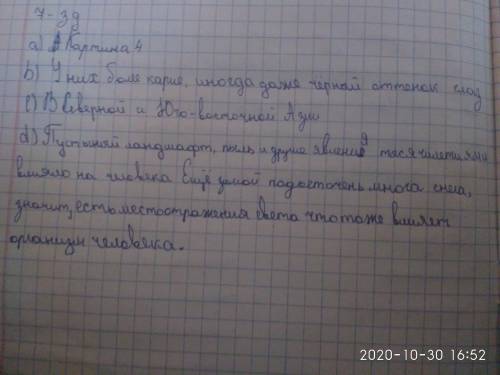 7-зд
а) Картина 4
b) У них боле карие, иногда даже черной оттенок глаз
с) В Северной и Юго-восточной Азии
d) Пустыняй ландшафт, пыль и другие явление тясячилетиями
влияло на человека Ещё зимой подосточень много снега,
значит, есть местостражения света что тоже влияет
организм человека.
2020-10-30 16:52